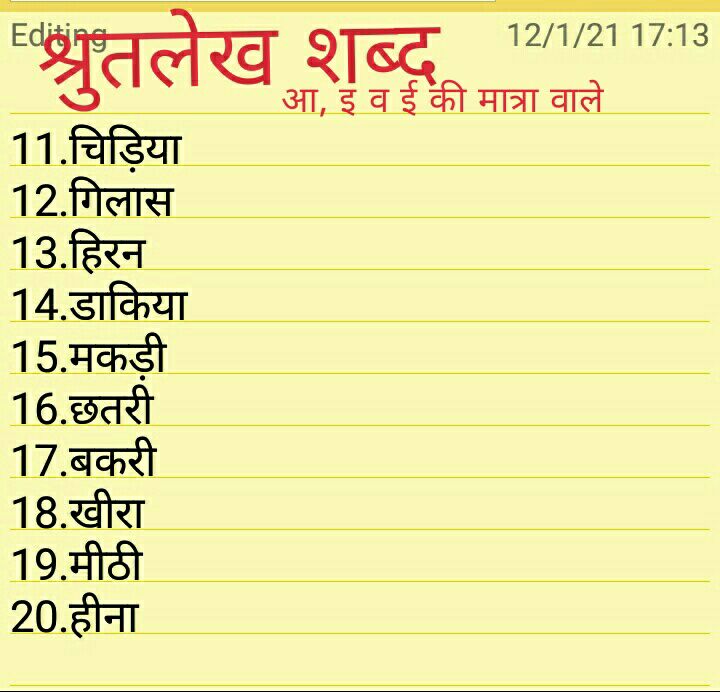 Editing 12/1/21 17:13
श्रुतलेख शब्द
आ, इ व ई की मात्रा वाले
11.चिड़िया
12.गिलास
13.हिरन
14.डाकिया
15.मकड़ी
16.छतरी
17.बकरी
18.खीरा
19.मीठी
20.हीना